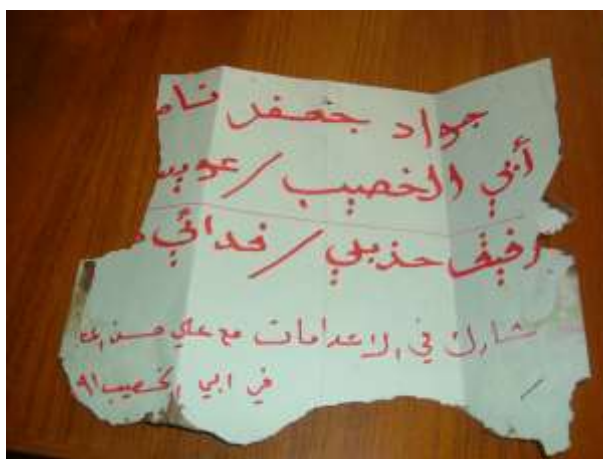 جواد جعفر نا
أبي الخصيب / عويس
رفيق حزبي / فدائي
شارك في الاعدامات مع علي حسن
في ابي الخصيب ٩١